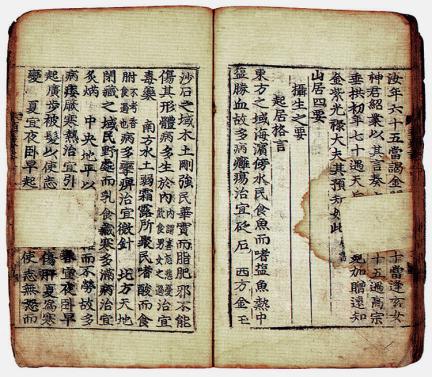 汝年六十五當謁金 十當逢玄女
神君紹業以其言奏 十五過高宗
垂拱初年七十過天 加贈遠知
金紫光祿大夫其預知如此
山居四要
攝生之要
起居格言
東方之域海濱傍水民食魚而嗜鹽魚熱中
鹽勝血故多病癰瘍治宜砭石 西方金玉
沙石之域水土剛強民華實而脂肥邪不能
傷其形體病多生於內 治宜
毒藥 南方水土弱霧露所聚民嗜酸而食
胕 病多攣痹治宜微針 北方天地
閉藏之域民野處而乳食藏寒多滿病治宜
灸焫 中央地平以 而不勞故多
病痿厥寒熱治宜引 春宜夜卧早
起廣步被髮以使志 傷肝夏為寒
變 夏宜夜卧早起 使志無怒而